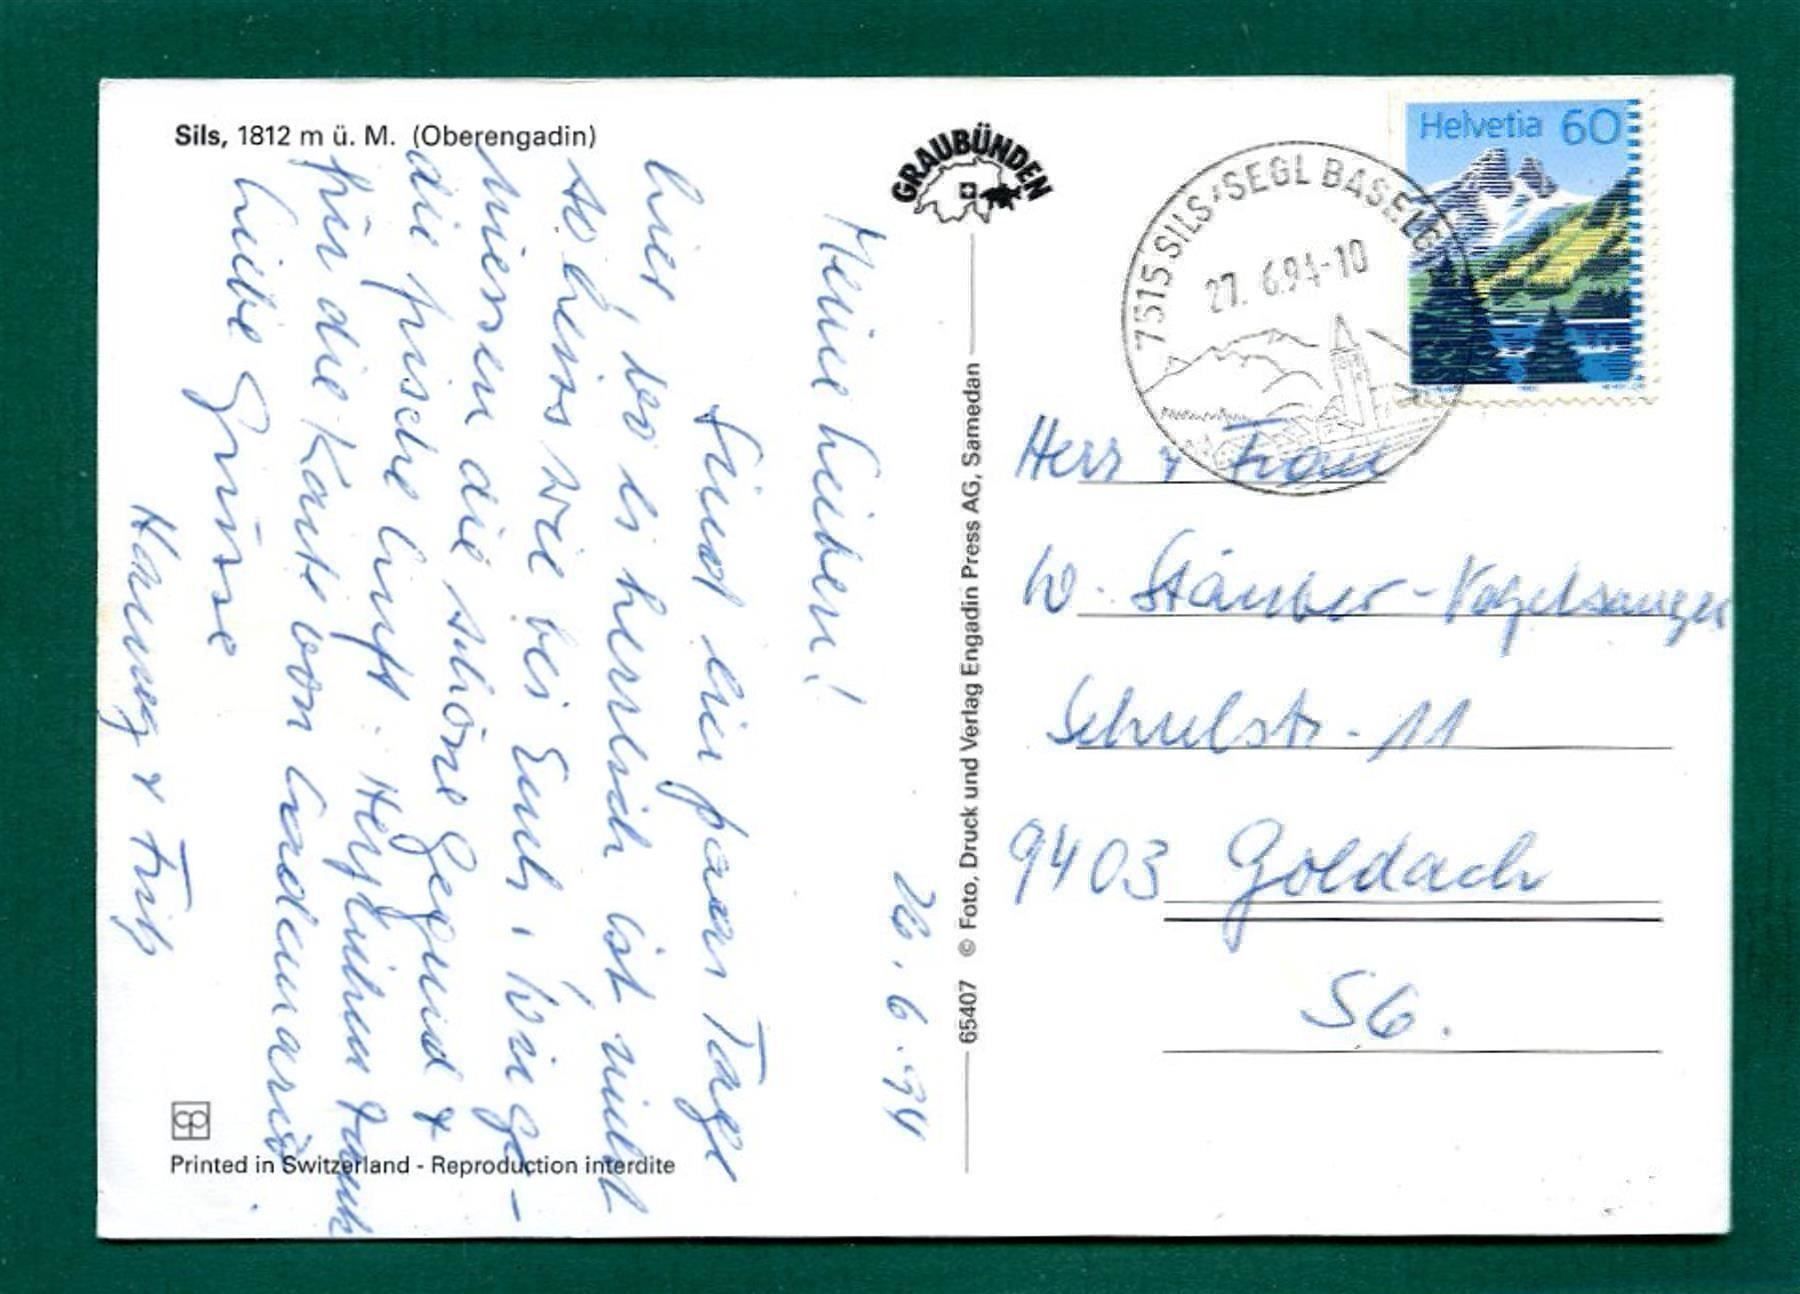 Sils, 1812 m ü. M. (Oberengadin)
GRAUBÜNDEN
Helvetia 60
7515 SILS/SEGL BASELGIA
27. 6.94-10
26.6.94
Meine Lieben!
Sind ein paar Tage
hier, wo es herrlich ist nicht
so heiss wie bei Euch,
niessen die schöne Gegend &
die frische Luft. Herzlichen Dank
für die Karte von
Liebe Grüsse
& Fritz
Herr & Frau
W. Stäuber-Vogelsanger
Schulstr. 11
9403 Goldach
SG.
65407 © Foto, Druck und Verlag Engadin Press AG, Samedan
Printed in Switzerland - Reproduction interdite